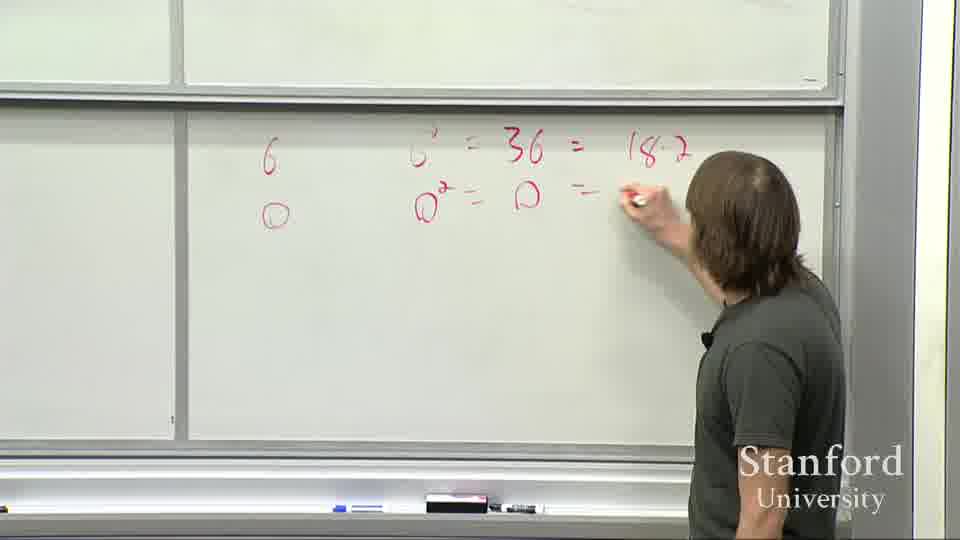 6 6² = 36 = 18·2
0 0² = 0 =
Stanford
University